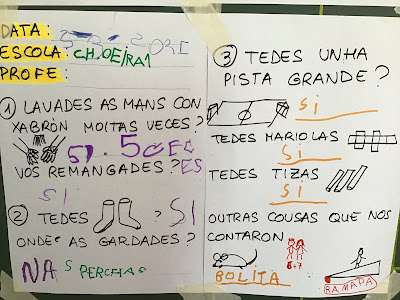 DATA:
ESCOLA: CHOEIRA1
PROFE:
① LAVADES AS MANS CON
XABRÓN MOITAS VECES?
SI. 5
VOS REMANGADES?
SI
② TEDES ? SI
ONDE AS GARDADES?
NAS PERCHAS
③ TEDES UNHA
PISTA GRANDE?
SI
TEDES MARIOLAS
SI
TEDES TIZAS
SI
OUTRAS COUSAS QUE NOS
CONTARON
6+7
BOLITA
RAMAPA